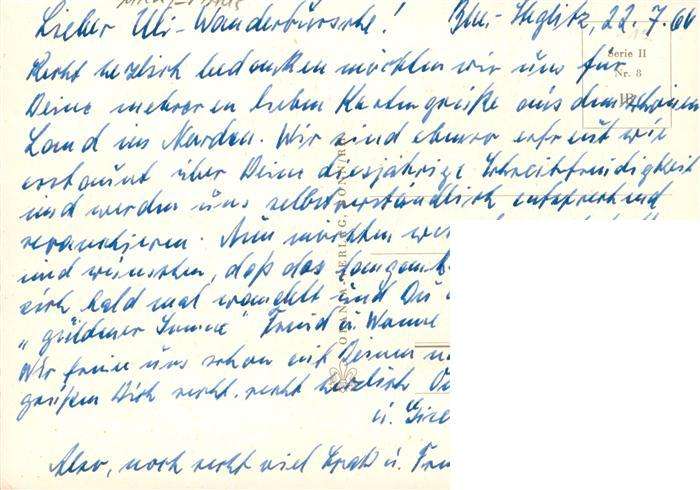 Lieber Uli-Wanderbursche! Bln.-Steglitz, 22.7.66
Serie II
Nr. 8
Recht herzlich bedanken möchten wir uns für
Deine mehreren lieben Kartengrüße aus dem schönen
Land im Norden. Wir sind ebenso erfreut wie
erstaunt über Deine diesjährige Schreibfreudigkeit
und werden uns selbstverständlich entsprechend
revanchieren. Nun möchten wir
und wünschen, daß das
sich bald mal wandelt und Du
"güldener Sonne" Freud u. Wonne
Wir freun uns schon auf Deinen
grüßen Dich recht, recht herzlich
u.
Also, noch recht viel Spaß u.